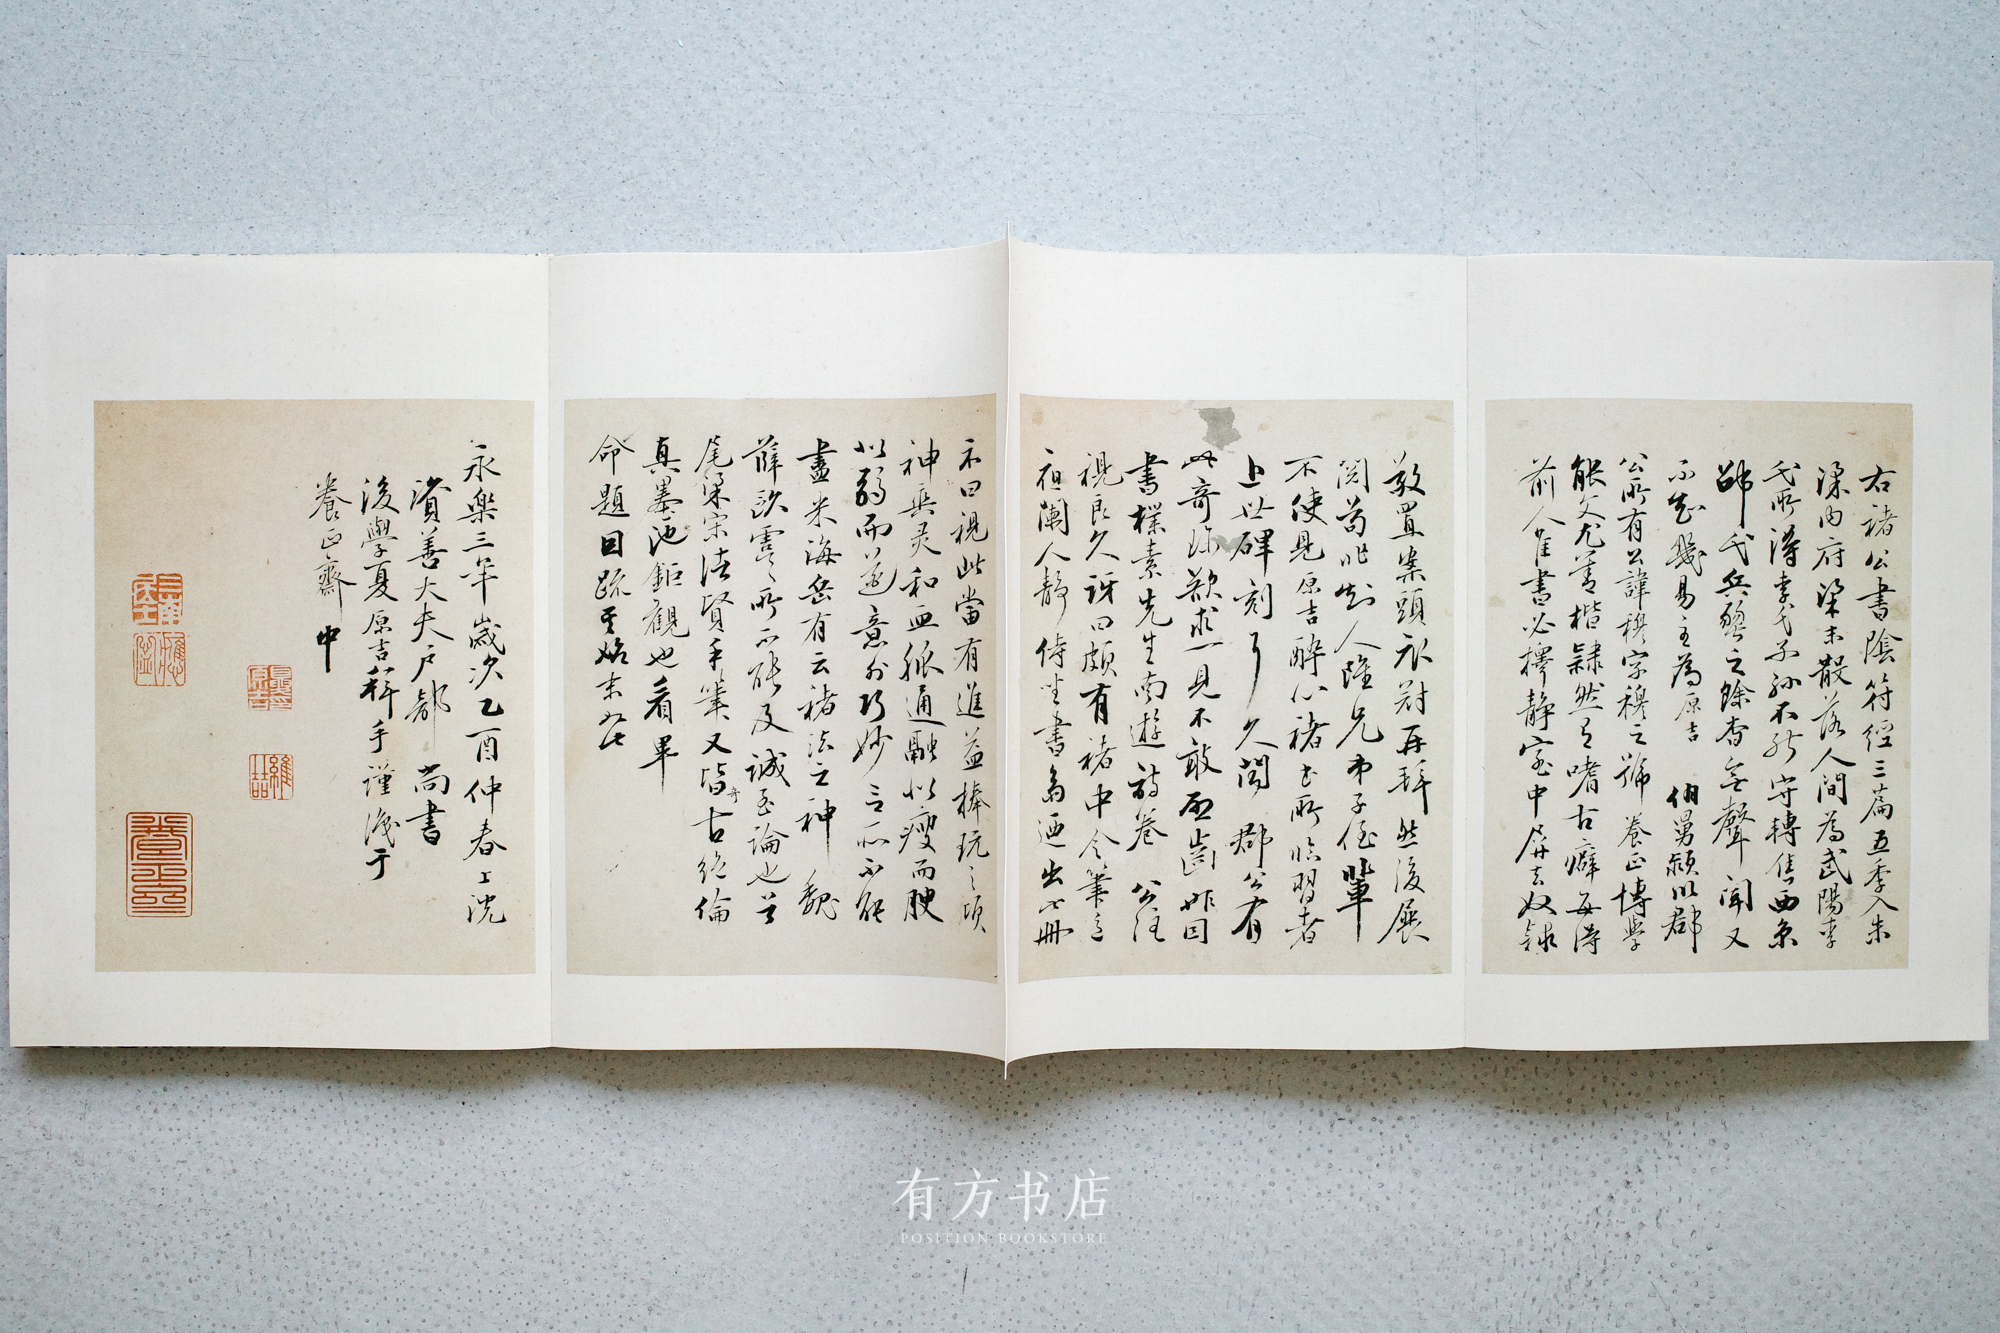 右褚公書陰符經三篇五季入朱
梁內府梁末散落人間為武陽李
氏所得李氏子孫不能守轉售西京
邵氏兵燹之餘杳無聲聞又
不知幾易主為原吉伯舅顏以郡
公所有公諱穆字穆之號養正博學
能文尤善楷隸然又嗜古癖每得
前人佳書必擇靜室中屏去奴隸
敬置案頭衣冠再拜然後展
閱苟非知人雖兄弟子侄輩
不使見原吉醉心褚書所臨習者
上世碑刻耳久聞郡公有
此奇珍欲求一見不敢啟齒昨因
書樸素先生南遊詩卷公注
視良久訝曰頗有褚中令筆意
夜闌人靜侍坐書舍迺出此冊
示曰視此當有進益捧玩之頃
神與灵和血脈通融似瘦而腴
似弱而遒意外巧妙言所不能
盡米海岳有云褚法之神魏
薛歐虞之所不能及誠至論也首
尾梁宋法賢手筆又皆奇古絕倫
真墨池鉅觀也看畢
命題因疏其始末如此
永樂三年歲次乙酉仲春上浣
資善大夫戶部尚書
後學夏原吉稱手謹識于
養正齋中
有方书店
POSITION BOOKSTORE